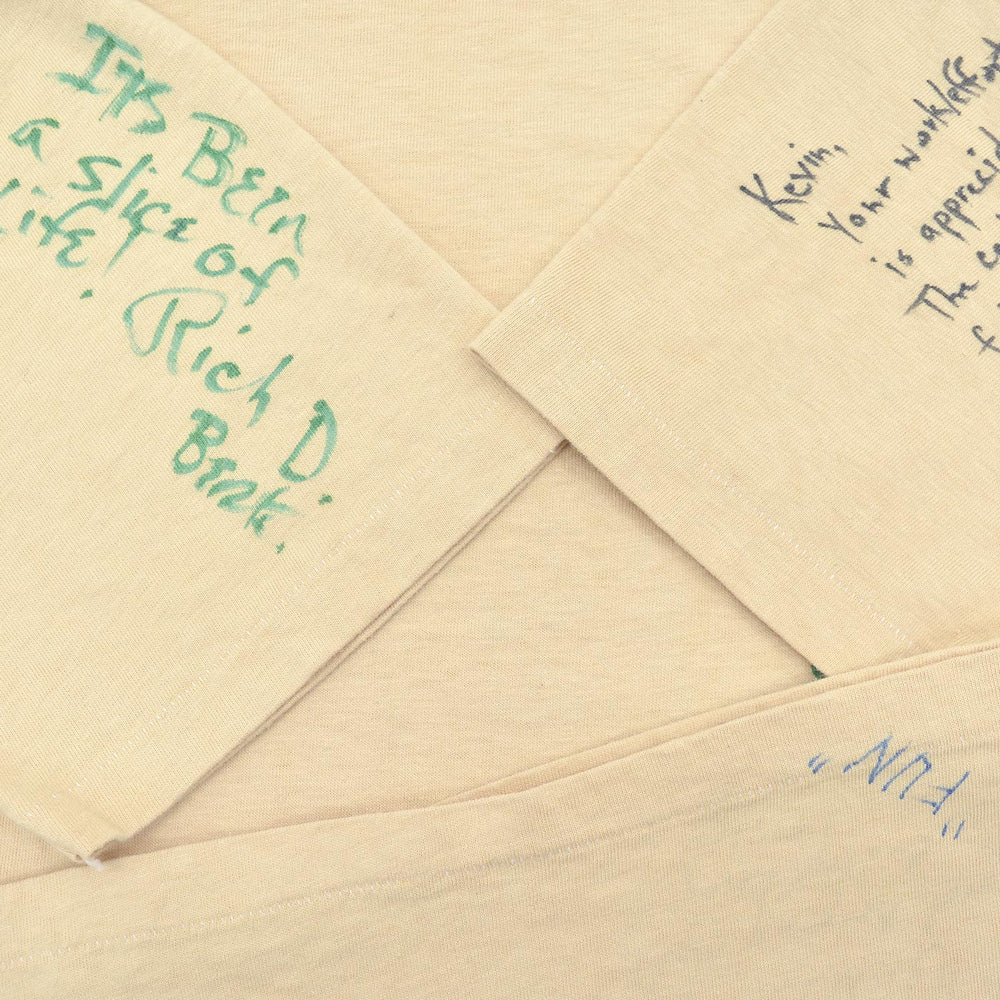 Its Been
a slice of
Life.
Rich D.
Berk.
Kevin,
Your work/effort
is apprecid
The co
f
"FUN"